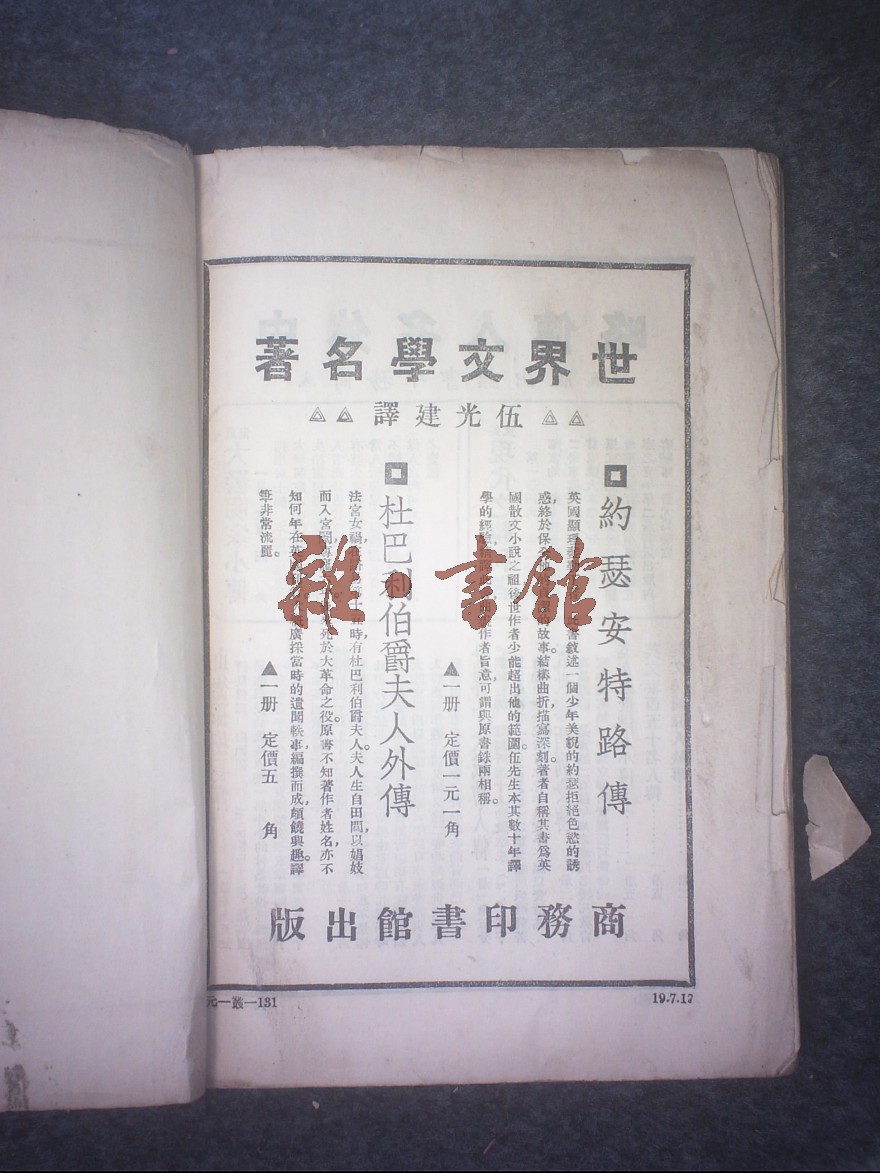 世界文學名著
伍光建譯
約瑟安特路傳
英國顯理
書敍述一個少年美貌的約瑟拒絕色慾的誘
惑終於保
的故事。結構曲折，描寫深刻。著者自稱其書爲英
國散文小說之祖後世作者少能超出他的範圍。伍先生本其數十年譯
學的經驗
作者旨意，可謂與原書銖兩相稱。
▲一册 定價一元一角
杜巴利伯爵夫人外傳
法宮女禍
時有杜巴利伯爵夫人。夫人生自田間，以娼妓
而入宮闈
死於大革命之役。原書不知著作者姓名，亦不
知何年在英
廣採當時的遺聞軼事，編撰而成，頗饒興趣。譯
筆非常流麗。
▲一册 定價五角
商務印書館出版
元—叢—131
19.7.17
雜·書館